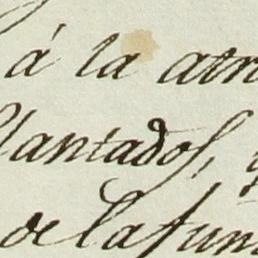 á la atr
lantados,
de la fun